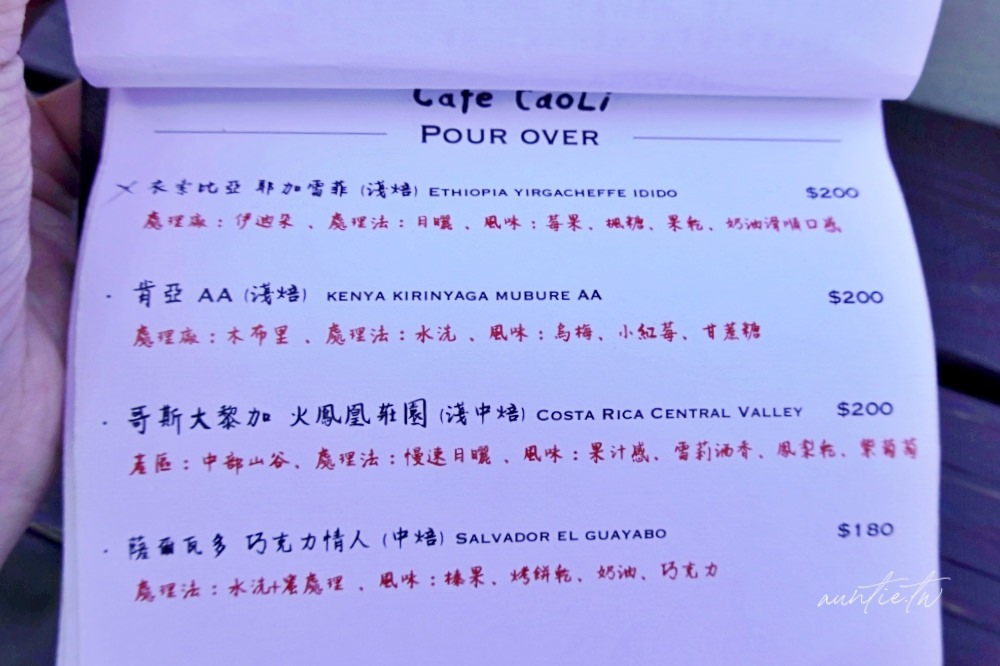 Cafe CaoLi
POUR OVER
衣索比亞 耶加雪菲 (淺焙) ETHIOPIA YIRGACHEFFE IDIDO $200
處理廠：伊迪朵、處理法：日曬、風味：莓果、楓糖、果乾、奶油滑順口感
· 肯亞 AA (淺焙) KENYA KIRINYAGA MUBURE AA $200
處理廠：木布里、處理法：水洗、風味：烏梅、小紅莓、甘蔗糖
· 哥斯大黎加 火鳳凰莊園 (淺中焙) COSTA RICA CENTRAL VALLEY $200
產區：中部山谷、處理法：慢速日曬、風味：果汁感、雪莉酒香、鳳梨乾、紫葡萄
· 薩爾瓦多 巧克力情人 (中焙) SALVADOR EL GUAYABO $180
處理法：水洗+蜜處理、風味：榛果、烤餅乾、奶油、巧克力
auntie.tw